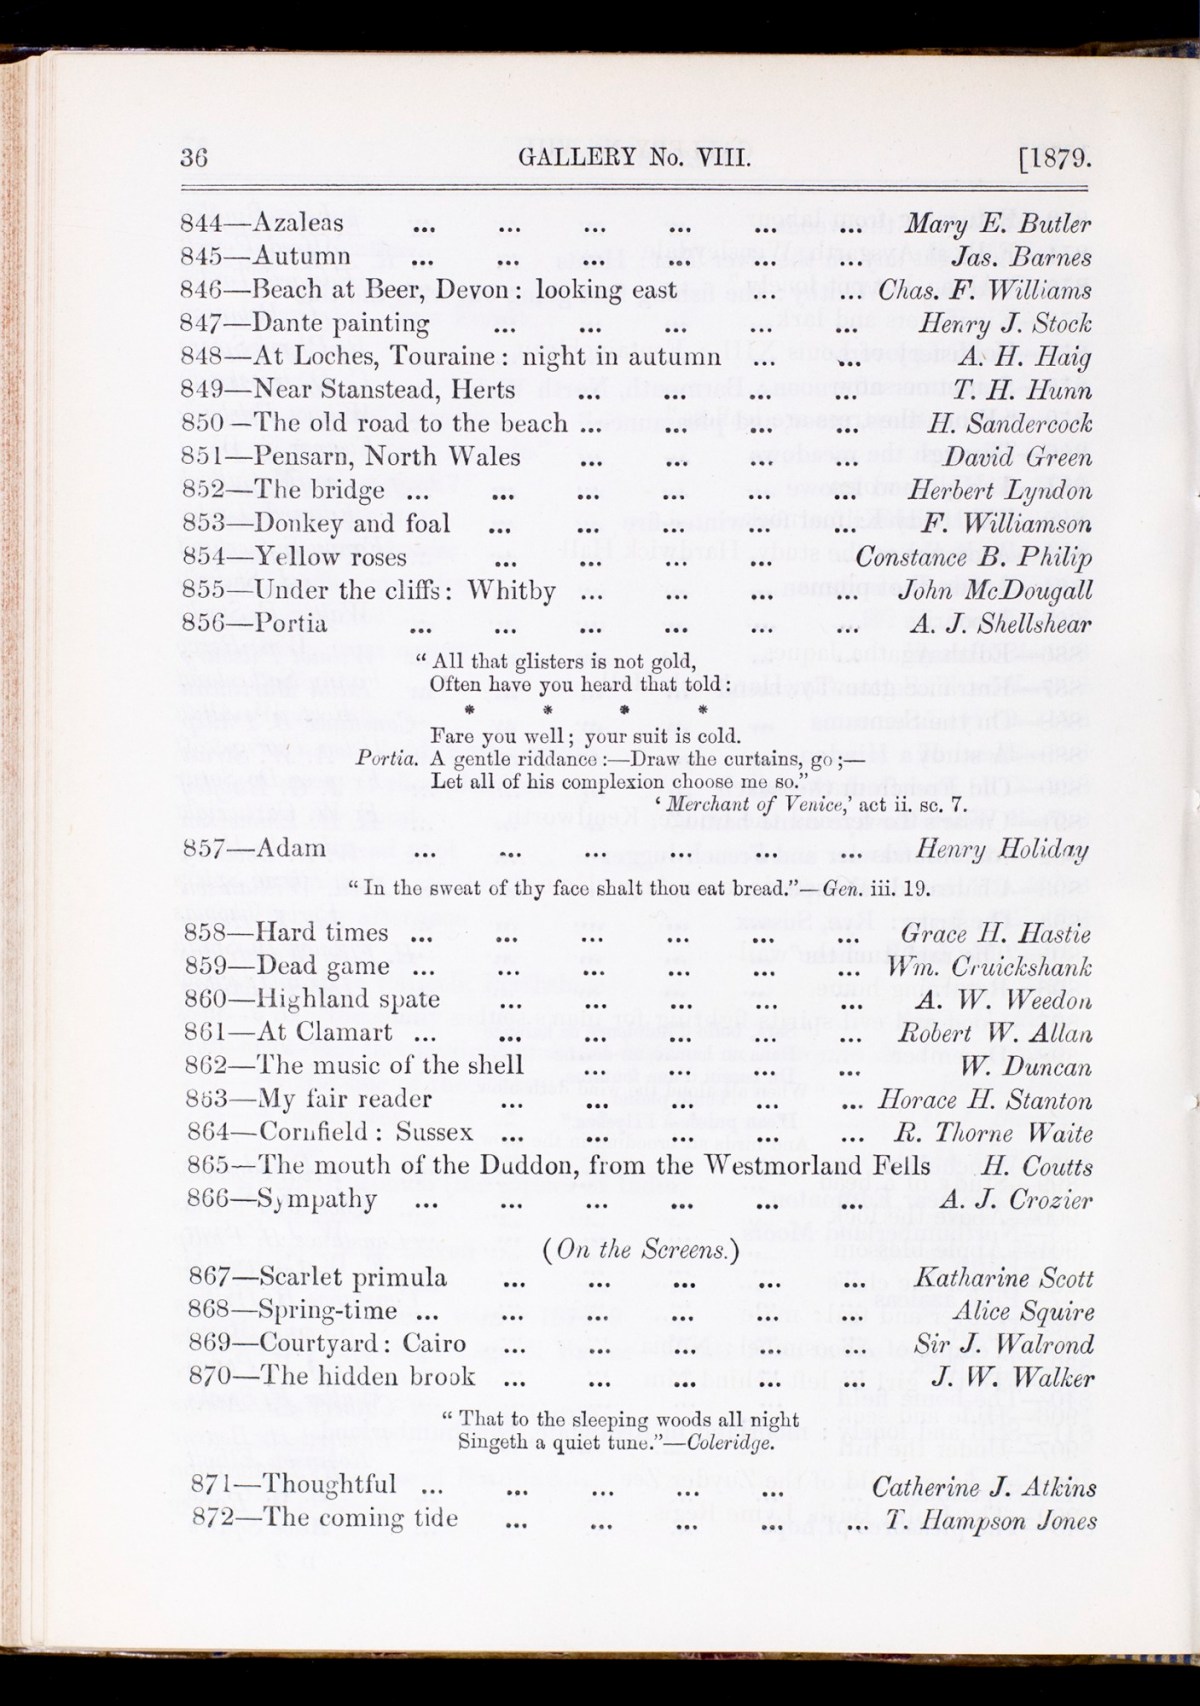 36 GALLERY No. VIII. [1879.
844—Azaleas ... ... ... ... ... ... Mary E. Butler
845—Autumn ... ... ... ... ... ... Jas. Barnes
846—Beach at Beer, Devon: looking east ... ... Chas. F. Williams
847—Dante painting ... ... ... ... ... Henry J. Stock
848—At Loches, Touraine: night in autumn ... ... A. H. Haig
849—Near Stanstead, Herts ... ... ... ... T. H. Hunn
850—The old road to the beach ... ... ... ... H. Sandercock
851—Pensarn, North Wales ... ... ... ... David Green
852—The bridge ... ... ... ... ... ... Herbert Lyndon
853—Donkey and foal ... ... ... ... ... F. Williamson
854—Yellow roses ... ... ... ... Constance B. Philip
855—Under the cliffs: Whitby ... ... ... ... John McDougall
856—Portia ... ... ... ... ... ... A. J. Shellshear
“All that glisters is not gold,
Often have you heard that told:
* * * *
Fare you well; your suit is cold.
Portia. A gentle riddance:—Draw the curtains, go;—
Let all of his complexion choose me so.”
‘Merchant of Venice,’ act ii. sc. 7.
857—Adam ... ... ... ... ... ... Henry Holiday
“In the sweat of thy face shalt thou eat bread.”—Gen. iii. 19.
858—Hard times ... ... ... ... ... ... Grace H. Hastie
859—Dead game ... ... ... ... ... ... Wm. Cruickshank
860—Highland spate ... ... ... ... ... A. W. Weedon
861—At Clamart ... ... ... ... ... ... Robert W. Allan
862—The music of the shell ... ... ... ... W. Duncan
863—My fair reader ... ... ... ... ... Horace H. Stanton
864—Cornfield: Sussex ... ... ... ... ... R. Thorne Waite
865—The mouth of the Duddon, from the Westmorland Fells H. Coutts
866—Sympathy ... ... ... ... ... ... A. J. Crozier
(On the Screens.)
867—Scarlet primula ... ... ... ... ... Katharine Scott
868—Spring-time ... ... ... ... ... ... Alice Squire
869—Courtyard: Cairo ... ... ... ... ... Sir J. Walrond
870—The hidden brook ... ... ... ... ... J. W. Walker
“That to the sleeping woods all night
Singeth a quiet tune.”—Coleridge.
871—Thoughtful ... ... ... ... ... Catherine J. Atkins
872—The coming tide ... ... ... ... ... T. Hampson Jones